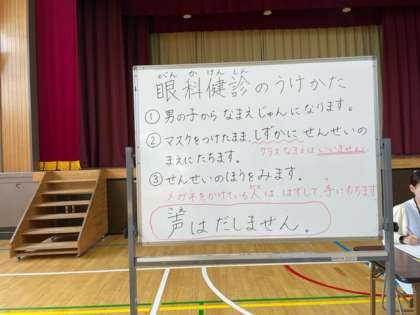 がんかけんしん
眼科健診のうけかた
① 男の子から なまえじゅんになります。
② マスクをつけたまま、しずかに せんせいの
まえにたちます。 クラス なまえは いいません
③ せんせいのほうをみます。
メガネをかけている人は、はずして、手にもちます
こえ
声はだしません。